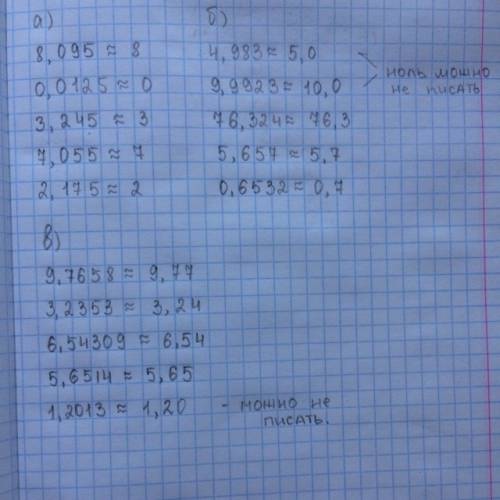 а)
8,095 ≈ 8
0,0125 ≈ 0
3,245 ≈ 3
7,055 ≈ 7
2,175 ≈ 2
б)
4,983 ≈ 5,0
9,9923 ≈ 10,0
ноль можно
не писать
76,324 ≈ 76,3
5,657 ≈ 5,7
0,6532 ≈ 0,7
в)
9,7658 ≈ 9,77
3,2353 ≈ 3,24
6,54309 ≈ 6,54
5,6514 ≈ 5,65
1,2013 ≈ 1,20 - можно не
писать.